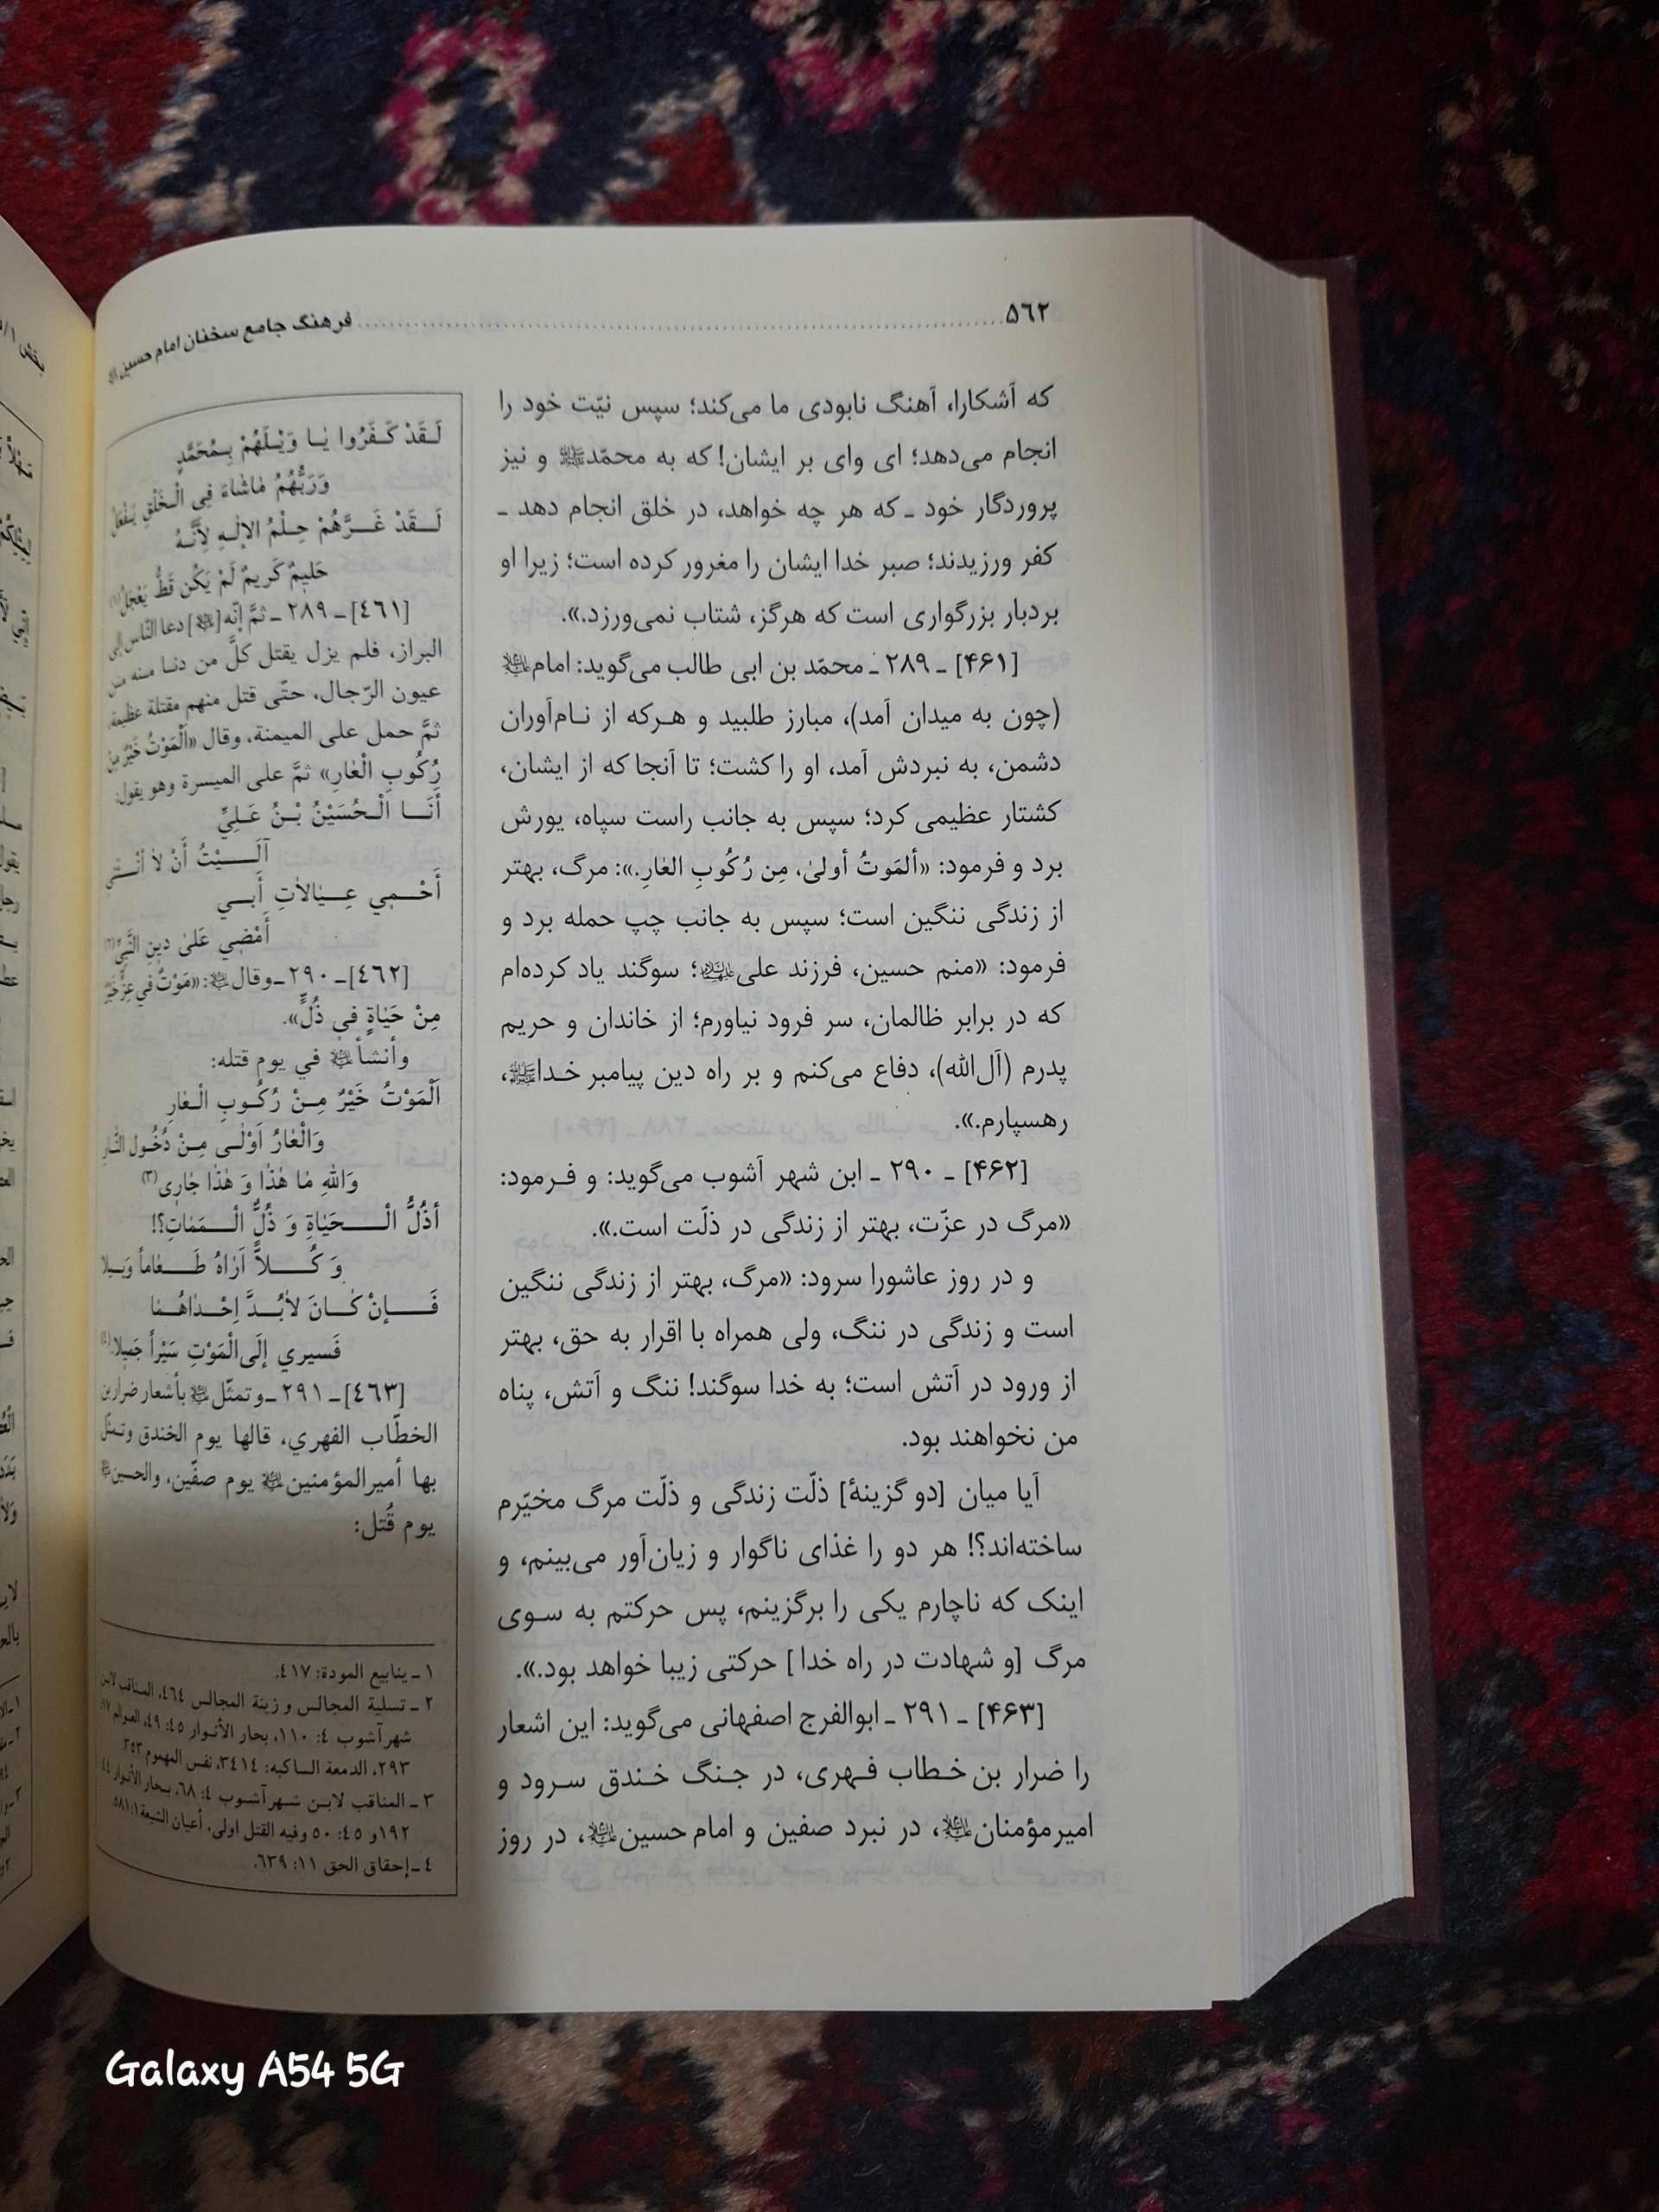 ۵۶۲ ........ فرهنگ جامع سخنان امام حسین
که آشکارا، آهنگ نابودی ما می‌کند؛ سپس نیّت خود را
انجام می‌دهد؛ ای وای بر ایشان! که به محمّدﷺ و نیز
پروردگار خود ـ که هر چه خواهد، در خلق انجام دهد ـ
کفر ورزیدند؛ صبر خدا ایشان را مغرور کرده است؛ زیرا او
بردبار بزرگواری است که هرگز، شتاب نمی‌ورزد.».
[۴۶۱] ـ ۲۸۹ ـ محمّد بن ابی طالب می‌گوید: امام علیه السلام
(چون به میدان آمد)، مبارز طلبید و هرکه از نام‌آوران
دشمن، به نبردش آمد، او را کشت؛ تا آنجا که از ایشان،
کشتار عظیمی کرد؛ سپس به جانب راست سپاه، یورش
برد و فرمود: «ألمَوتُ أولیٰ، مِن رُکُوبِ العٰارِ.»: مرگ، بهتر
از زندگی ننگین است؛ سپس به جانب چپ حمله برد و
فرمود: «منم حسین، فرزند علی علیهما السلام؛ سوگند یاد کرده‌ام
که در برابر ظالمان، سر فرود نیاورم؛ از خاندان و حریم
پدرم (آل‌الله)، دفاع می‌کنم و بر راه دین پیامبر خداﷺ،
رهسپارم.».
[۴۶۲] ـ ۲۹۰ ـ ابن شهر آشوب می‌گوید: و فرمود:
«مرگ در عزّت، بهتر از زندگی در ذلّت است.».
و در روز عاشورا سرود: «مرگ، بهتر از زندگی ننگین
است و زندگی در ننگ، ولی همراه با اقرار به حق، بهتر
از ورود در آتش است؛ به خدا سوگند! ننگ و آتش، پناه
من نخواهند بود.
آیا میان [دو گزینهٔ] ذلّت زندگی و ذلّت مرگ مخیّرم
ساخته‌اند؟! هر دو را غذای ناگوار و زیان‌آور می‌بینم، و
اینک که ناچارم یکی را برگزینم، پس حرکتم به سوی
مرگ [و شهادت در راه خدا] حرکتی زیبا خواهد بود.».
[۴۶۳] ـ ۲۹۱ ـ ابوالفرج اصفهانی می‌گوید: این اشعار
را ضرار بن خطاب فهری، در جنگ خندق سرود و
امیرمؤمنان علیه السلام، در نبرد صفین و امام حسین علیه السلام، در روز
لَقَدْ کَفَرُوا یٰا وَیْلَهُمْ بِمُحَمَّدٍ
وَرَبُّهُمْ مٰاشٰاءَ فِی الْخَلْقِ یَفْعَلُ
لَقَدْ غَرَّهُمْ حِلْمُ الاِلٰهِ لِأَنَّهُ
حَلیمٌ کَریمٌ لَمْ یَکُن قَطُّ یَعْجَلُ(۱)
[٤٦١] ـ ٢٨٩ ـ ثمَّ إنّه [علیه السلام] دعا النّاس إلی
البراز، فلم یزل یقتل کلَّ من دنا منه من
عیون الرّجال، حتّی قتل منهم مقتلة عظیمة،
ثمَّ حمل علی المیمنة، وقال «اَلْمَوْتُ خَیْرٌ مِنْ
رُکُوبِ الْعٰارِ» ثمَّ علی المیسرة وهو یقول:
أَنَا الْحُسَیْنُ بْنُ عَلِیِّ
آلَیْتُ أَنْ لاٰ أنْثَنی
أَحْمی عِیٰالاٰتِ أَبی
أَمْضی عَلیٰ دینِ النَّبِیِّ(۲)
[٤٦٢] ـ ٢٩٠ ـ وقال علیه السلام: «مَوْتٌ فی عِزٍّ خَیْرٌ
مِنْ حَیٰاةٍ فی ذُلٍّ».
وأنشأ علیه السلام في یوم قتله:
اَلْمَوْتُ خَیْرٌ مِنْ رُکُوبِ الْعٰارِ
وَالْعٰارُ اَوْلٰی مِنْ دُخُولِ النّارِ
وَاللهِ مٰا هٰذٰا وَ هٰذٰا جٰاری(۳)
أَذُلُّ الْحَیٰاةِ وَ ذُلُّ الْمَمٰاتِ؟!
وَ کُلاًّ اَرٰاهُ طَعٰاماً وَبیلا
فَإنْ کٰانَ لاٰبُدَّ اِحْدٰاهُمٰا
فَسیري إلَی الْمَوْتِ سَیْراً جَمیلا(٤)
[٤٦٣] ـ ٢٩١ ـ وتمثّل علیه السلام بأشعار ضرار بن
الخطّاب الفهري، قالها یوم الخندق وتمثّل
بها أمیرالمؤمنین علیه السلام یوم صفّین، والحسین
یوم قُتل:
١ ـ ینابیع المودة: ٤١٧.
٢ ـ تسلیة المجالس و زینة المجالس ٤٦٤، المناقب لابن
شهرآشوب ٤: ١١٠، بحار الأنوار ٤٥: ٤٩، العوالم ١٧:
٢٩٣، الدمعة الساکبه: ٣٤١٤، نفس المهموم ٣٥٣.
٣ ـ المناقب لابن شهرآشوب ٤: ٦٨، بحار الأنوار ٤٤:
١٩٢ و ٤٥: ٥٠ وفیه القتل اولی، أعیان الشیعة ١: ٥٨١.
٤ ـ إحقاق الحق ١١: ٦٣٩.
Galaxy A54 5G